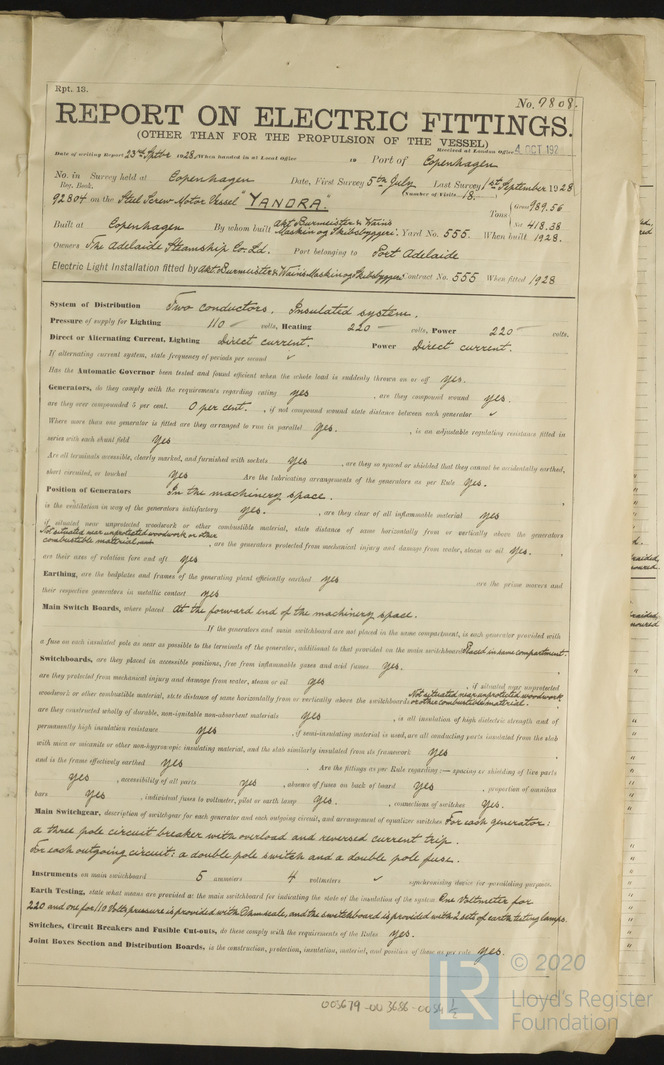 Rpt. 13.
No. 9808.
REPORT ON ELECTRIC FITTINGS.
(OTHER THAN FOR THE PROPULSION OF THE VESSEL)
Received at London Office 4 OCT 192
Date of writing Report 23rd Septbr 1928. When handed in at Local Office 19 Port of Copenhagen
No. in Survey held at Copenhagen Date, First Survey 5th July Last Survey 1st September 1928
Reg. Book. (Number of Visits 18.)
92804 on the Steel Screw Motor Vessel "YANDRA." Tons Gross 989.56 Net 418.38
Built at Copenhagen By whom built Akt. Burmeister & Wain's Maskin og Skibsbyggeri. Yard No. 555. When built 1928.
Owners The Adelaide Steamship Co. Ld. Port belonging to Port Adelaide
Electric Light Installation fitted by Akt. Burmeister & Wain's Maskin og Skibsbyggeri Contract No. 555 When fitted 1928
System of Distribution Two conductors. Insulated system.
Pressure of supply for Lighting 110 volts, Heating 220 volts, Power 220 volts.
Direct or Alternating Current, Lighting Direct current. Power Direct current.
If alternating current system, state frequency of periods per second ✓
Has the Automatic Governor been tested and found efficient when the whole load is suddenly thrown on or off yes.
Generators, do they comply with the requirements regarding rating yes, are they compound wound yes.
are they over compounded 5 per cent. 0 per cent., if not compound wound state distance between each generator ✓
Where more than one generator is fitted are they arranged to run in parallel yes., is an adjustable regulating resistance fitted in
series with each shunt field yes
Are all terminals accessible, clearly marked, and furnished with sockets yes, are they so spaced or shielded that they cannot be accidentally earthed,
short circuited, or touched yes Are the lubricating arrangements of the generators as per Rule yes.
Position of Generators In the machinery space.
is the ventilation in way of the generators satisfactory yes., are they clear of all inflammable material yes
if situated near unprotected woodwork or other combustible material, state distance of same horizontally from or vertically above the generators
Not situated near unprotected woodwork or other combustible material, are the generators protected from mechanical injury and damage from water, steam or oil yes.
are their axes of rotation fore and aft yes
Earthing, are the bedplates and frames of the generating plant efficiently earthed yes are the prime movers and
their respective generators in metallic contact yes
Main Switch Boards, where placed At the forward end of the machinery space.
If the generators and main switchboard are not placed in the same compartment, is each generator provided with
a fuse on each insulated pole as near as possible to the terminals of the generator, additional to that provided on the main switchboard Placed in same compartment.
Switchboards, are they placed in accessible positions, free from inflammable gases and acid fumes yes.
are they protected from mechanical injury and damage from water, steam or oil yes, if situated near unprotected
woodwork or other combustible material, state distance of same horizontally from or vertically above the switchboards Not situated near unprotected woodwork or other combustible material.
are they constructed wholly of durable, non-ignitable non-absorbent materials yes, is all insulation of high dielectric strength and of
permanently high insulation resistance yes, if semi-insulating material is used, are all conducting parts insulated from the slab
with mica or micanite or other non-hygroscopic insulating material, and the slab similarly insulated from its framework yes
and is the frame effectively earthed yes. Are the fittings as per Rule regarding:— spacing or shielding of live parts
yes, accessibility of all parts yes, absence of fuses on back of board yes, proportion of omnibus
bars yes, individual fuses to voltmeter, pilot or earth lamp yes., connections of switches yes.
Main Switchgear, description of switchgear for each generator and each outgoing circuit, and arrangement of equalizer switches For each generator:
a three pole circuit breaker with overload and reversed current trip.
For each outgoing circuit: a double pole switch and a double pole fuse.
Instruments on main switchboard 5 ammeters 4 voltmeters ✓ synchronising device for paralleling purposes.
Earth Testing, state what means are provided at the main switchboard for indicating the state of the insulation of the system One Voltmeter for
220 and one for 110 Volts pressure is provided with Ohm scale, and the switchboard is provided with 2 sets of earth testing lamps.
Switches, Circuit Breakers and Fusible Cut-outs, do these comply with the requirements of the Rules yes.
Joint Boxes Section and Distribution Boards, is the construction, protection, insulation, material, and position of these as per rule yes.
003679-003686-0084 1/2
LR
© 2020
Lloyd's Register
Foundation